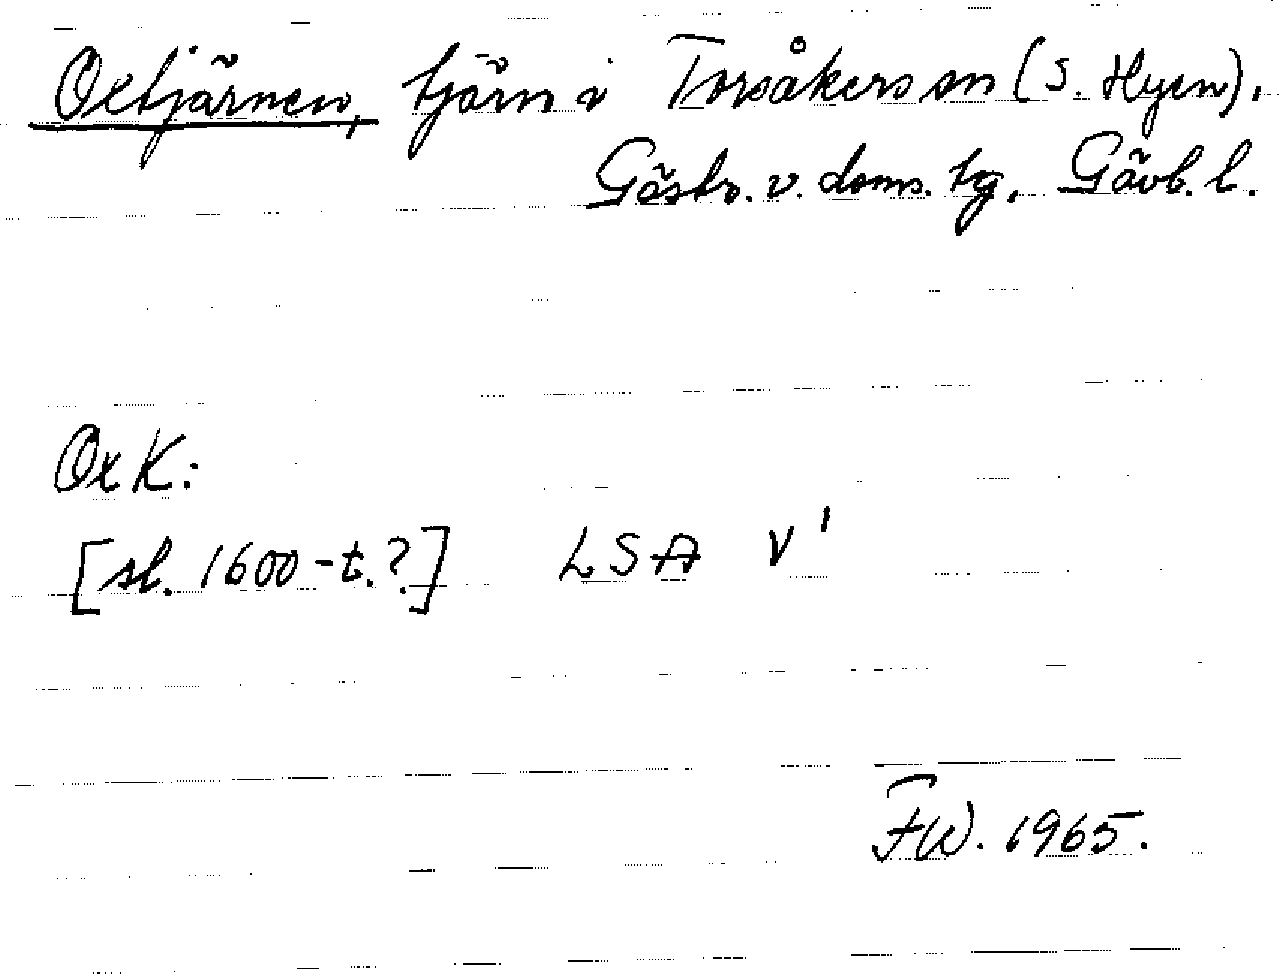 Oxtjärnen, tjärn i Torsåkers sn (S. Hyen),
Gästr. v. doms. tg, Gävb. l.
Ox K:
[sl. 1600-t.?] LSA V'
FW. 1965.